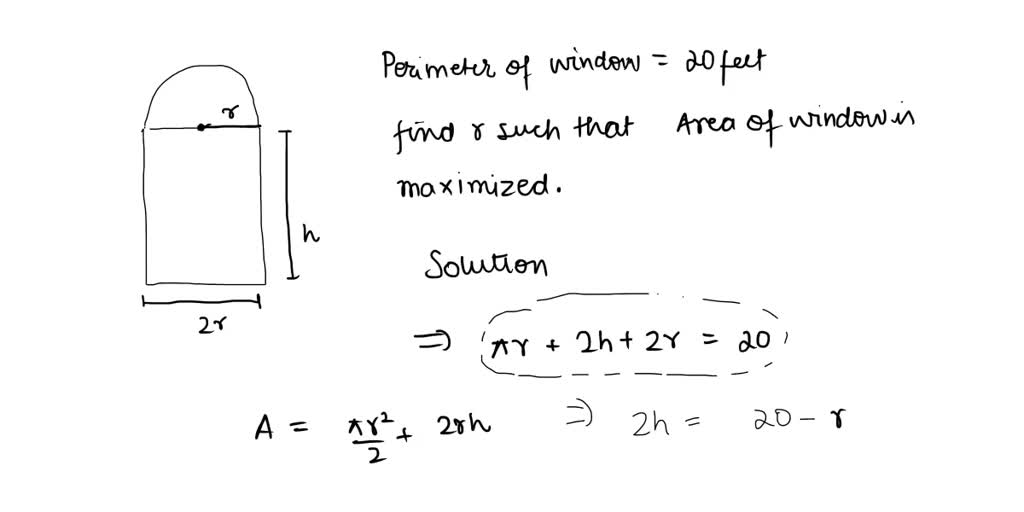 Perimeter of window = 20 feet
r
find r such that Area of window is
maximized.
h
Solution
2r
⇒ πr + 2h + 2r = 20
A = πr²/2 + 2rh ⇒ 2h = 20 - r